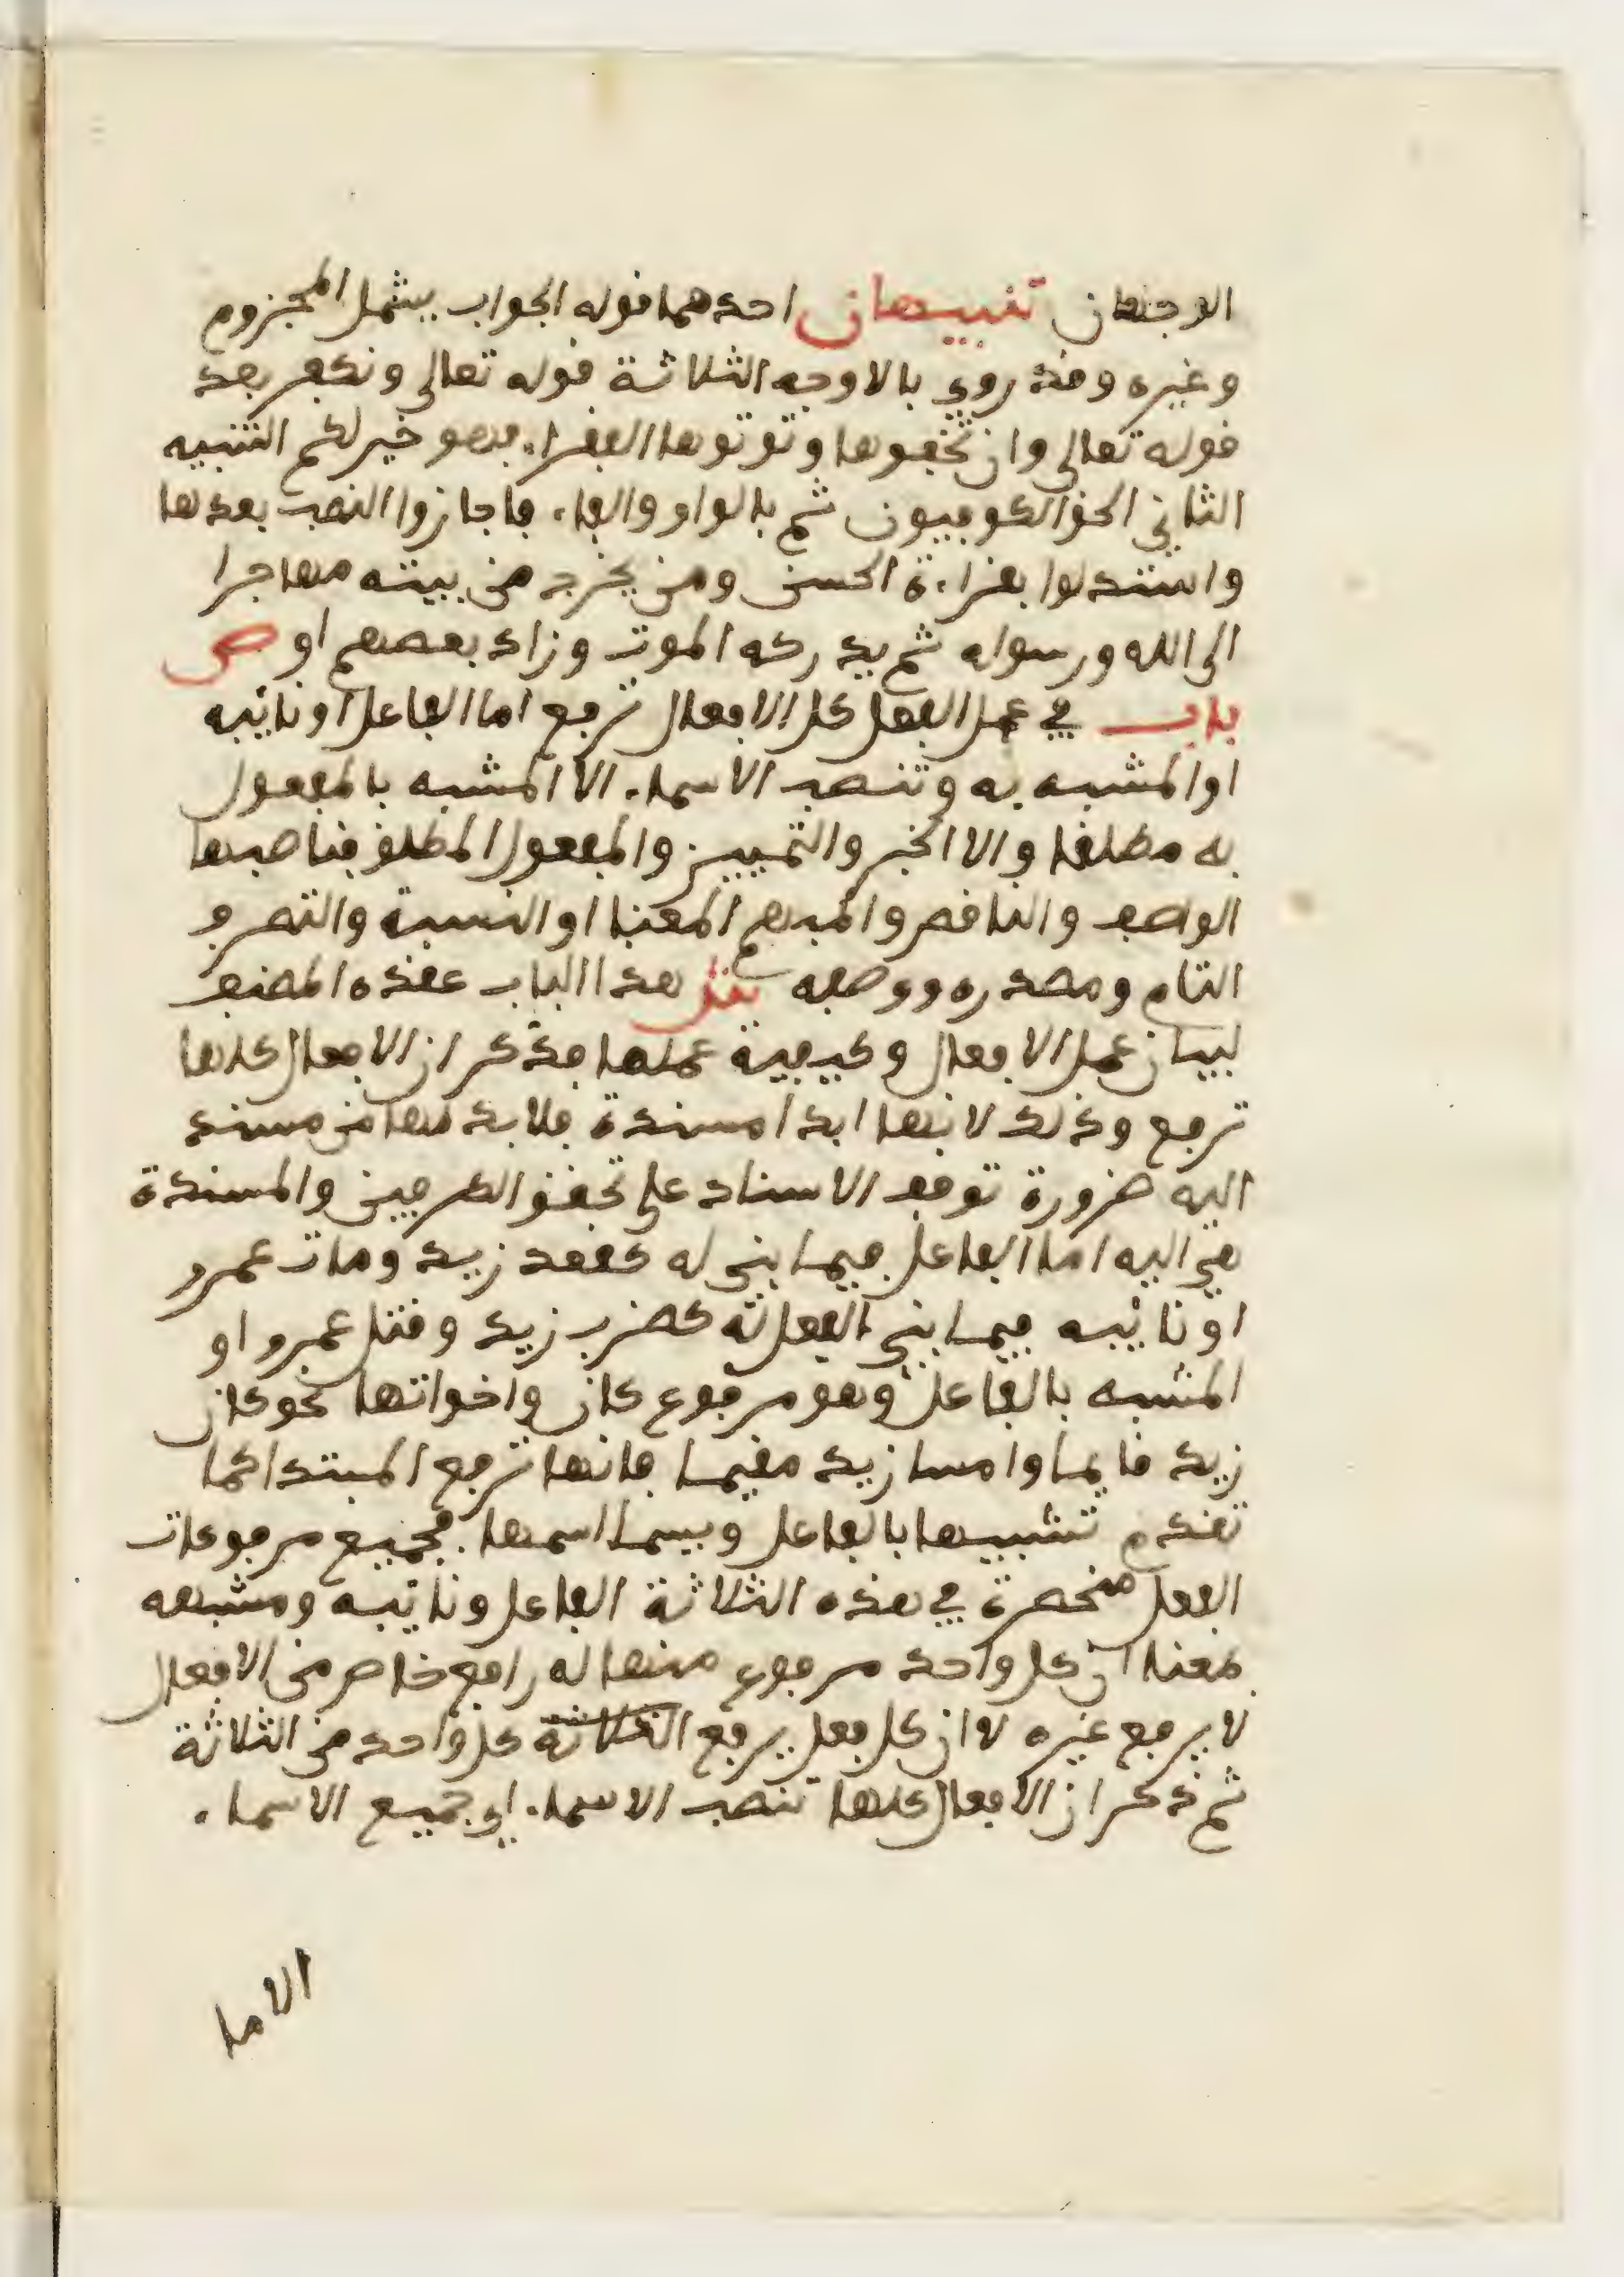 الوجهان تنبيهان احدهما قوله الجواب يشمل المجزوم
وغيره وقد روي بالاوجه الثلاثة قوله تعالى ونكفر بعد
قوله تعالى وان تخفوها وتوتوها الفقراء فهو خير لكم التنبيه
الثاني الحق الكوفيون ثم بالواو والفاء فاجازوا النصب بعدها
واستدلوا بقراءة الحسن ومن يخرج من بيته مهاجرا
الى الله ورسوله ثم يدركه الموت وزاد بعضهم او ص
باب في عمل الفعل كل الافعال ترفع اما الفاعل او نائبه
او المشبه به وتنصب الاسماء الا المشبه بالمفعول
به مطلقا والا الخبر والتمييز والمفعول المطلق فناصبها
الوصف والناقص والمبهم المعنا او النسبة والتصرف
التام ومصدره ووصفه ش هذا الباب عقده المصنف
لبيان عمل الافعال وكيفية عملها فذكر ان الافعال كلها
ترفع وذلك لانها ابدا مسندة فلا بد لها من مسند
اليه ضرورة توقف الاسناد على تحقق الطرفين والمسندة
هي اليه اما الفاعل فيما بني له كقعد زيد ومات عمرو
او نائبه فيما بني الفعل له كضرب زيد وقتل عمرو او
المشبه بالفاعل وهو مرفوع كان واخواتها نحو كان
زيد قايما وامسا زيد مقيما فانها ترفع المبتدا كما
تقدم تشبيها بالفاعل ويسما اسمها فجميع مرفوعات
الفعل منحصرة في هذه الثلاثة الفاعل ونائبه ومشبهه
بمعنا ان كل واحد مرفوع منها له رافع خاص من الافعال
لا يرفع غيره لا ان كل فعل يرفع الثلاثة كل واحد من الثلاثة
ثم ذكر ان الافعال كلها تنصب الاسماء اي جميع الاسماء
الاما